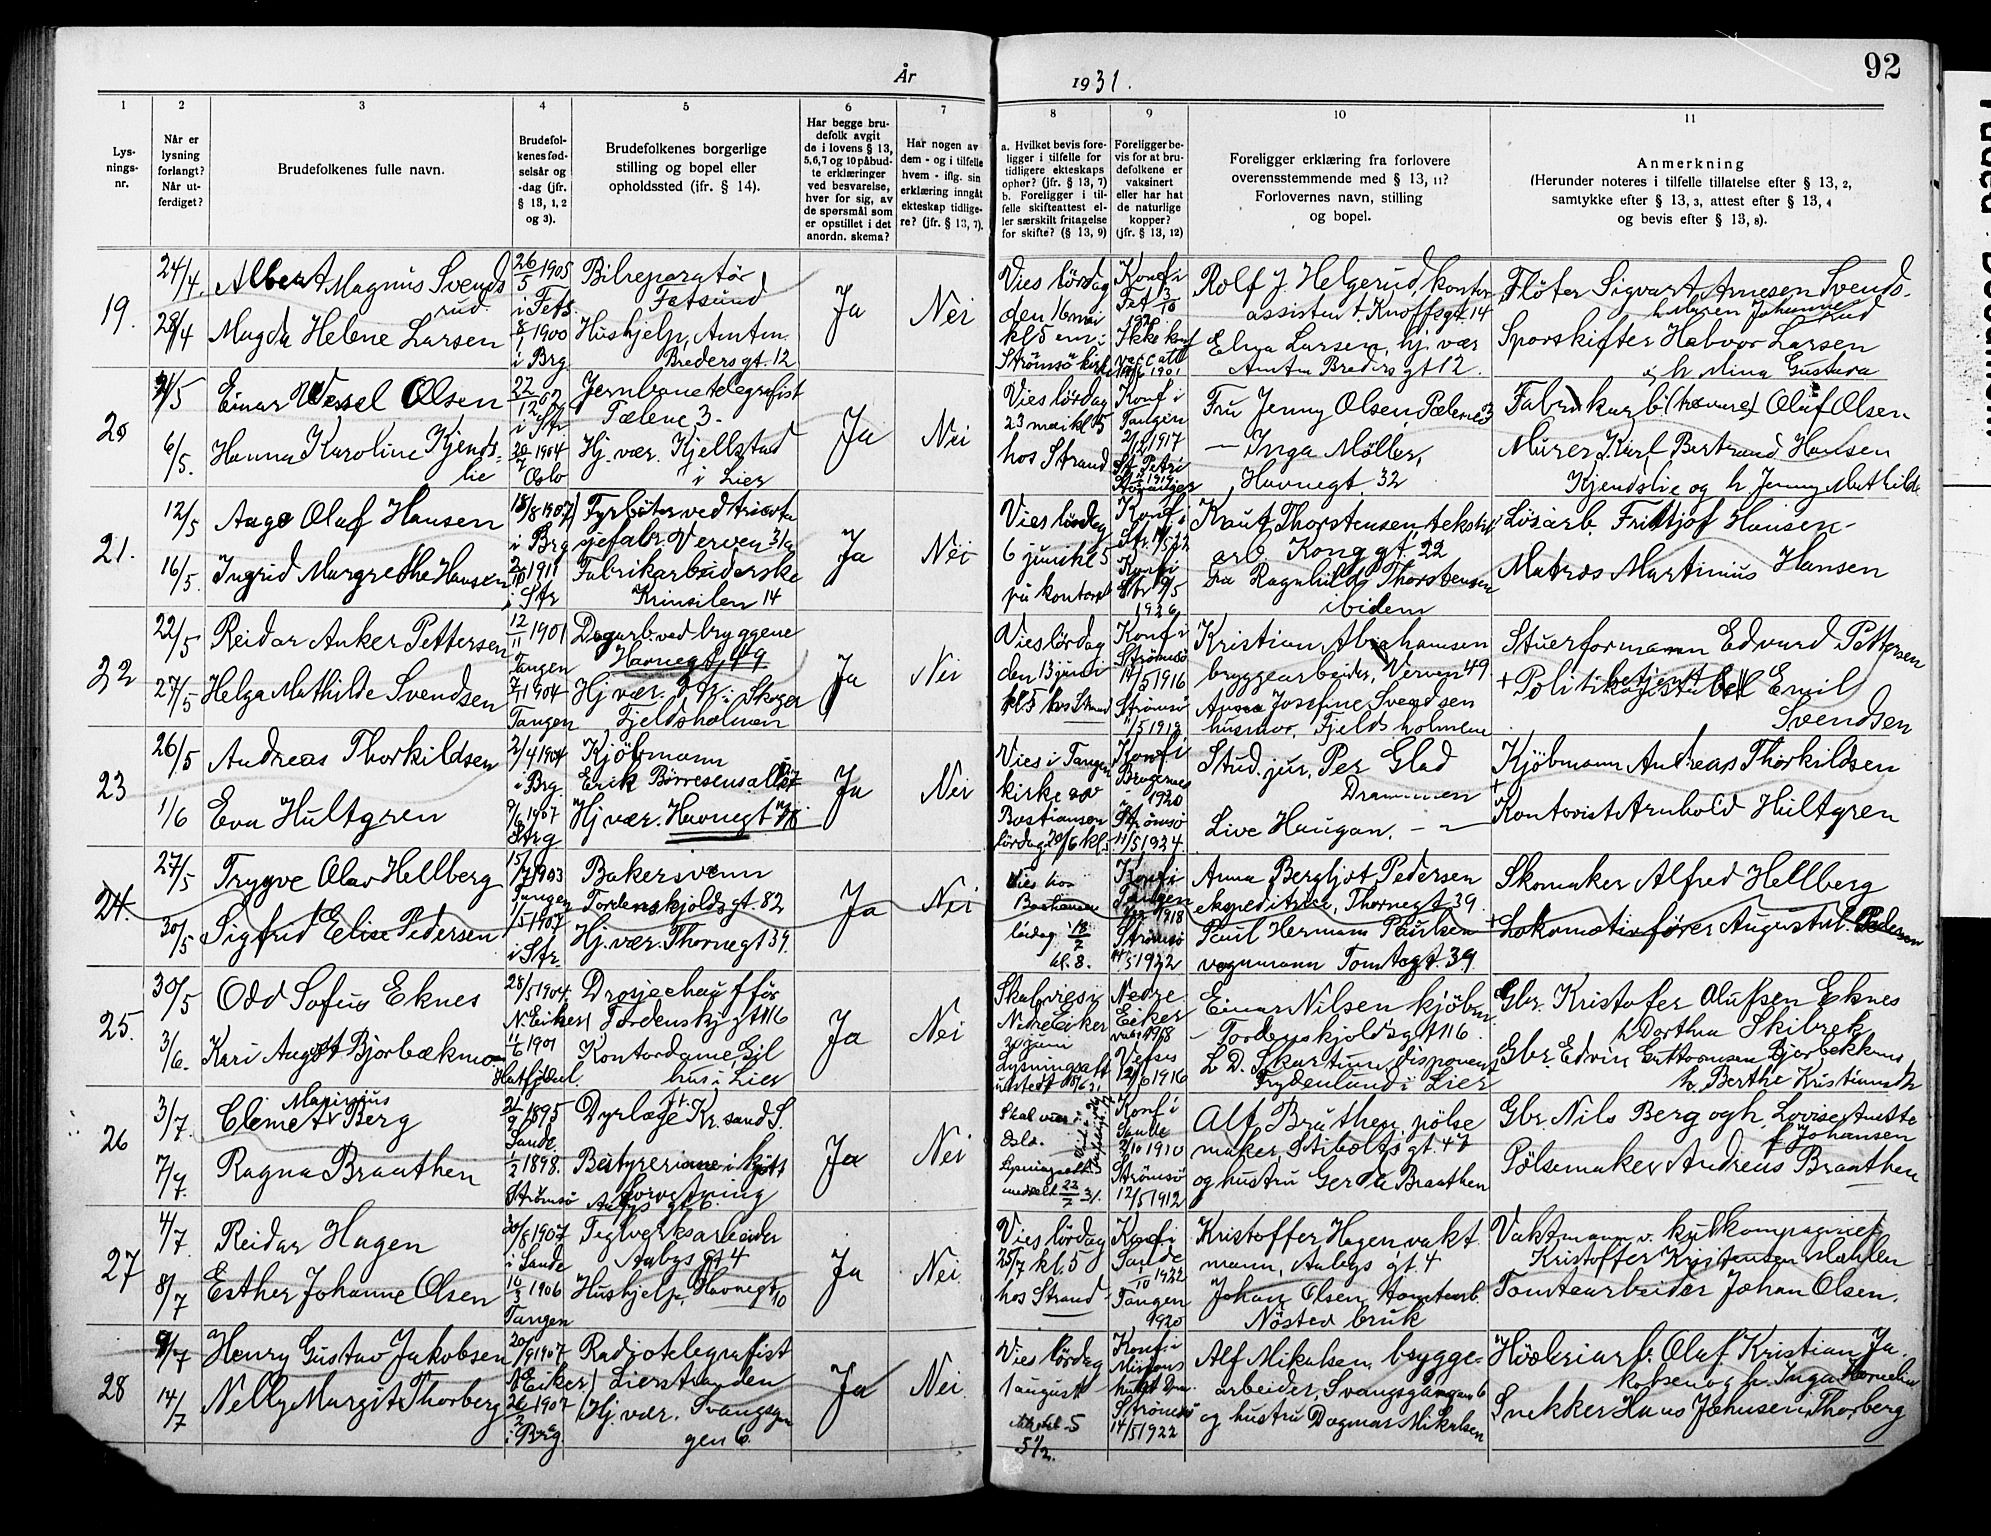 92
År 1931.
1 2 3 4 5 6 7 8 9 10 11
Lys-
nings-
nr.
Når er
lysning
forlangt?
Når ut-
ferdiget?
Brudefolkenes fulle navn.
Brudefol-
kenes fød-
selsår og
-dag (jfr.
§ 13, 1, 2
og 3).
Brudefolkenes borgerlige
stilling og bopel eller
opholdssted (ifr. § 14).
Har begge bru-
defolk avgit
de i lovens § 13,
5,6,7 og 10 påbud-
te erklæringer
ved besvarelse,
hver for sig, av
de spørsmål som
er opstillet i det
anordn. skema?
Har nogen av
dem - og i tilfelle
hvem - iflg. sin
erklæring inngått
ekteskap tidlige-
re? (jfr. § 13, 7).
a. Hvilket bevis fore-
ligger i tilfelle for
tidligere ekteskaps
ophør? (jfr. § 13, 7)
b. Foreligger i til-
felle skifteattest el-
ler særskilt fritagelse
for skifte? (§ 13, 9)
Foreligger be-
vis for at bru-
defolkene er
vaksinert
eller har hat
de naturlige
kopper?
(jfr. § 13, 12)
Foreligger erklæring fra forlovere
overensstemmende med § 13, 11?
Forlovernes navn, stilling
og bopel.
Anmerkning
(Herunder noteres i tilfelle tillatelse efter § 13, 2,
samtykke efter § 13, 3, attest efter § 13, 4
og bevis efter § 13, 8).
19.
24/4.
28/4
Albert Magnus Svends
rud.
Magda Helene Larsen
26/5 1905
i Fets.
8/1 1900
i Brg
Bilreparatør
Fetsund
Hushjelp, Amtm.
Breders gt. 12
Ja
Nei
Vies lørdag
den 16 mai
kl 5 em i
Strømsö kirke
Konf i
Fet 3/10
1920
Ikke konf
vacc att
1901
Rolf J. Helgerud, kontor
assistent, Knoffsgt. 14
Elna Larsen, hj. vær
Amtm Breders gt 12.
Fløter Sigvart Arnesen Svends-
h. Maren Johanne rud
Sporskifter Halvor Larsen
og h Mina Gustava
20
4/5
6/5.
Einar Wessel Olsen
Hanna Karoline Kjends-
lie
22/12 02
i Str
20/7 1904
Oslo
Jernbanetelegrafist
Tælene 3.
Hj. vær. Kjellstad
i Lier
Ja
Nei
Vies lördag
23 mai kl 5
hos Strand
Konf i
Tangen
1917
St Petri
Stavanger
Fru Jenny Olsen, Pælene 3
— Inga Möller,
Havnegt. 32
Fabrikarb. (havarb) Oluf Olsen
Murer Karl Bertrand Hansen
Kjendslie og h. Jenny Mathilde
21.
12/5
16/5.
Aage Olaf Hansen
Ingrid Margrethe Hansen
18/8 1907
i Brg
1911
i Str
Fyrbøter ved tricota
gefabr. Verven 31a
Fabrikarbeiderske
Krinsilen 14
Ja
Nei
Vies lördag
6 juni kl 5
på kontoret
Konf i
Str. 14/5 22
Konf i
Str 9/5
1926
Knut Thorstensen tekstil
arb. Kong gt. 22
Fru Ragnhild Thorstensen
ibidem
Løsarb. Fritjof Hansen -
Matros Martinius Hansen
22
22/5
27/5
Reidar Anker Pettersen
Helga Mathilde Svendsen
12/11 1901
Tangen
7/1 1904
Tangen
Dagarb. ved bryggene
Havnegt. 49
Hj vær. i Skoger
Fjeldsholmen
Ja
Nei
Vies lördag
den 13 juni
kl 5 hos Strand
Konf i
Strømsø
14/5 1916
Strømsø
11/5 1919
Kristian Abrahamsen
bryggearbeider, Verven 49
Anna Josefine Svendsen
husmor, Fjeldsholmen
Stuerformann Edvard Pettersen
+ Politibetjent Emil
Svendsen
23
26/5
1/6
Andreas Thorkildsen
Eva Hultgren
2/4 1904
i Brg.
9/6 1907
Strg.
Kjöbmann
Erik Börresens alle 7
Hj vær. Havnegt
Ja
Nei
Vies i Tangen
kirke av
Bastiansen
lördag 20/6 kl. 5
Konf i
Bragernes
1920
Strømsø
11/5 1924
Stud. jur. Per Glad
Drammen
Live Haugan. - —
Kjöbmann Andreas Thorkildsen
+
Kontorist Arnhold Hultgren
24.
27/5
30/5
Trygve Olav Hellberg
Sigfrid Elise Pedersen
15/7 1903
Tangen
1/5 1907
i Str.
Bakersvenn
Tordenskjolds gt. 82
Hj. vær. Thornegt 39.
Ja
Nei
Vies hos
Bastiansen
lördag 18/7
kl. 8.
Konf i
Tangen
1918
Strømsø
14/5 1922
Anna Bergljot Pedersen
ekspeditrise, Thornegt 39.
Paul Hermann Paulsen
vognmann Tomtegt. 39.
Skomaker Alfred Hellberg
+ Lokomotivfører August M. Pedersen
25.
30/5
3/6.
Odd Sofus Eknes
Kari August Bjorbækmo
28/5 1904.
N. Eiker
11/6 1901
Hatfjdal.
Drosjechauffør
Tordenskj gt 116
Kontordame, Gil
hus i Lier
Ja
Nei
Skal vies i
Nedre Eiker
20 juni
Lysningsatt
utstedt 18/6 31
Nedre
Eiker
1918
Vefsn
1916
Einar Nilsen kjöbm.
- Tordenskjolds gt 116.
L D. Skartum disponent
Frydenlund i Lier
Gbr. Kristofer Olufsen Eknes
h Dorthea Skilbrek
Gbr. Edvin Guttormsen Bjorbekkmo,
h. Berthe Kristiansdtr
26
3/7.
7/7.
Clemet Marinius Berg
Ragna Braathen
1895
Sande
1/2 1898.
Strømsø
Dyrlæge Kr. sand S.
Bestyrerinne i kjött
forretning
Aabys gt. 6.
Ja
Nei
Skal vies i
Oslo.
Lysningsatt
meddelt 22/7 31.
Konf i
Sande
2/10 1910
Strømsø
12/5 1912
Alf Braathen, pölse
maker, Stibolts gt. 47
og hustru Gerda Braathen
Gbr. Nils Berg og h. Lovise Anette
f Johansen
Pölsemaker Andreas Braathen
27
4/7
8/7
Reidar Hagen
Esther Johanne Olsen
30/8 1907
i Sande
10/3 1906
Tangen
Teglverksarbeider
Aabys gt. 4
Hushjelp, Havnegt 10
Ja
Nei.
Vies lördag
25/7 kl. 5
hos Strand
Konf i
Sande
/10 1922
Tangen
1920
Kristoffer Hagen vakt
mann, Aabys gt. 4
Johan Olsen, tomtearb.
Nøsted bruk
Vaktmann v. kulkompagniet
Kristoffer Kristensen Mæhlen
Tomtearbeider Johan Olsen.
28
9/7
14/7
Henry Gustav Jakobsen
Nelly Margit Thorberg
20/9 1907
N Eiker
26/2 1907
i Brg
Radiotelegrafist
Lierstranden
Hj. vær. Svangsgan
gen 6.
Ja
Nei.
Vies lördag
1 august
kl. 5
5 1/2.
Konf i
Misjons
huset Dra.
Strømsø
14/5 1922
Alf Mikalsen, brygge-
arbeider, Svangsgangen 6
og hustru Dagmar Mikalsen
Hövleriarb. Olaf Kristian Ja.
kobsen og h. Inga Kornelia
Snekker Hans Johnsen Thorberg